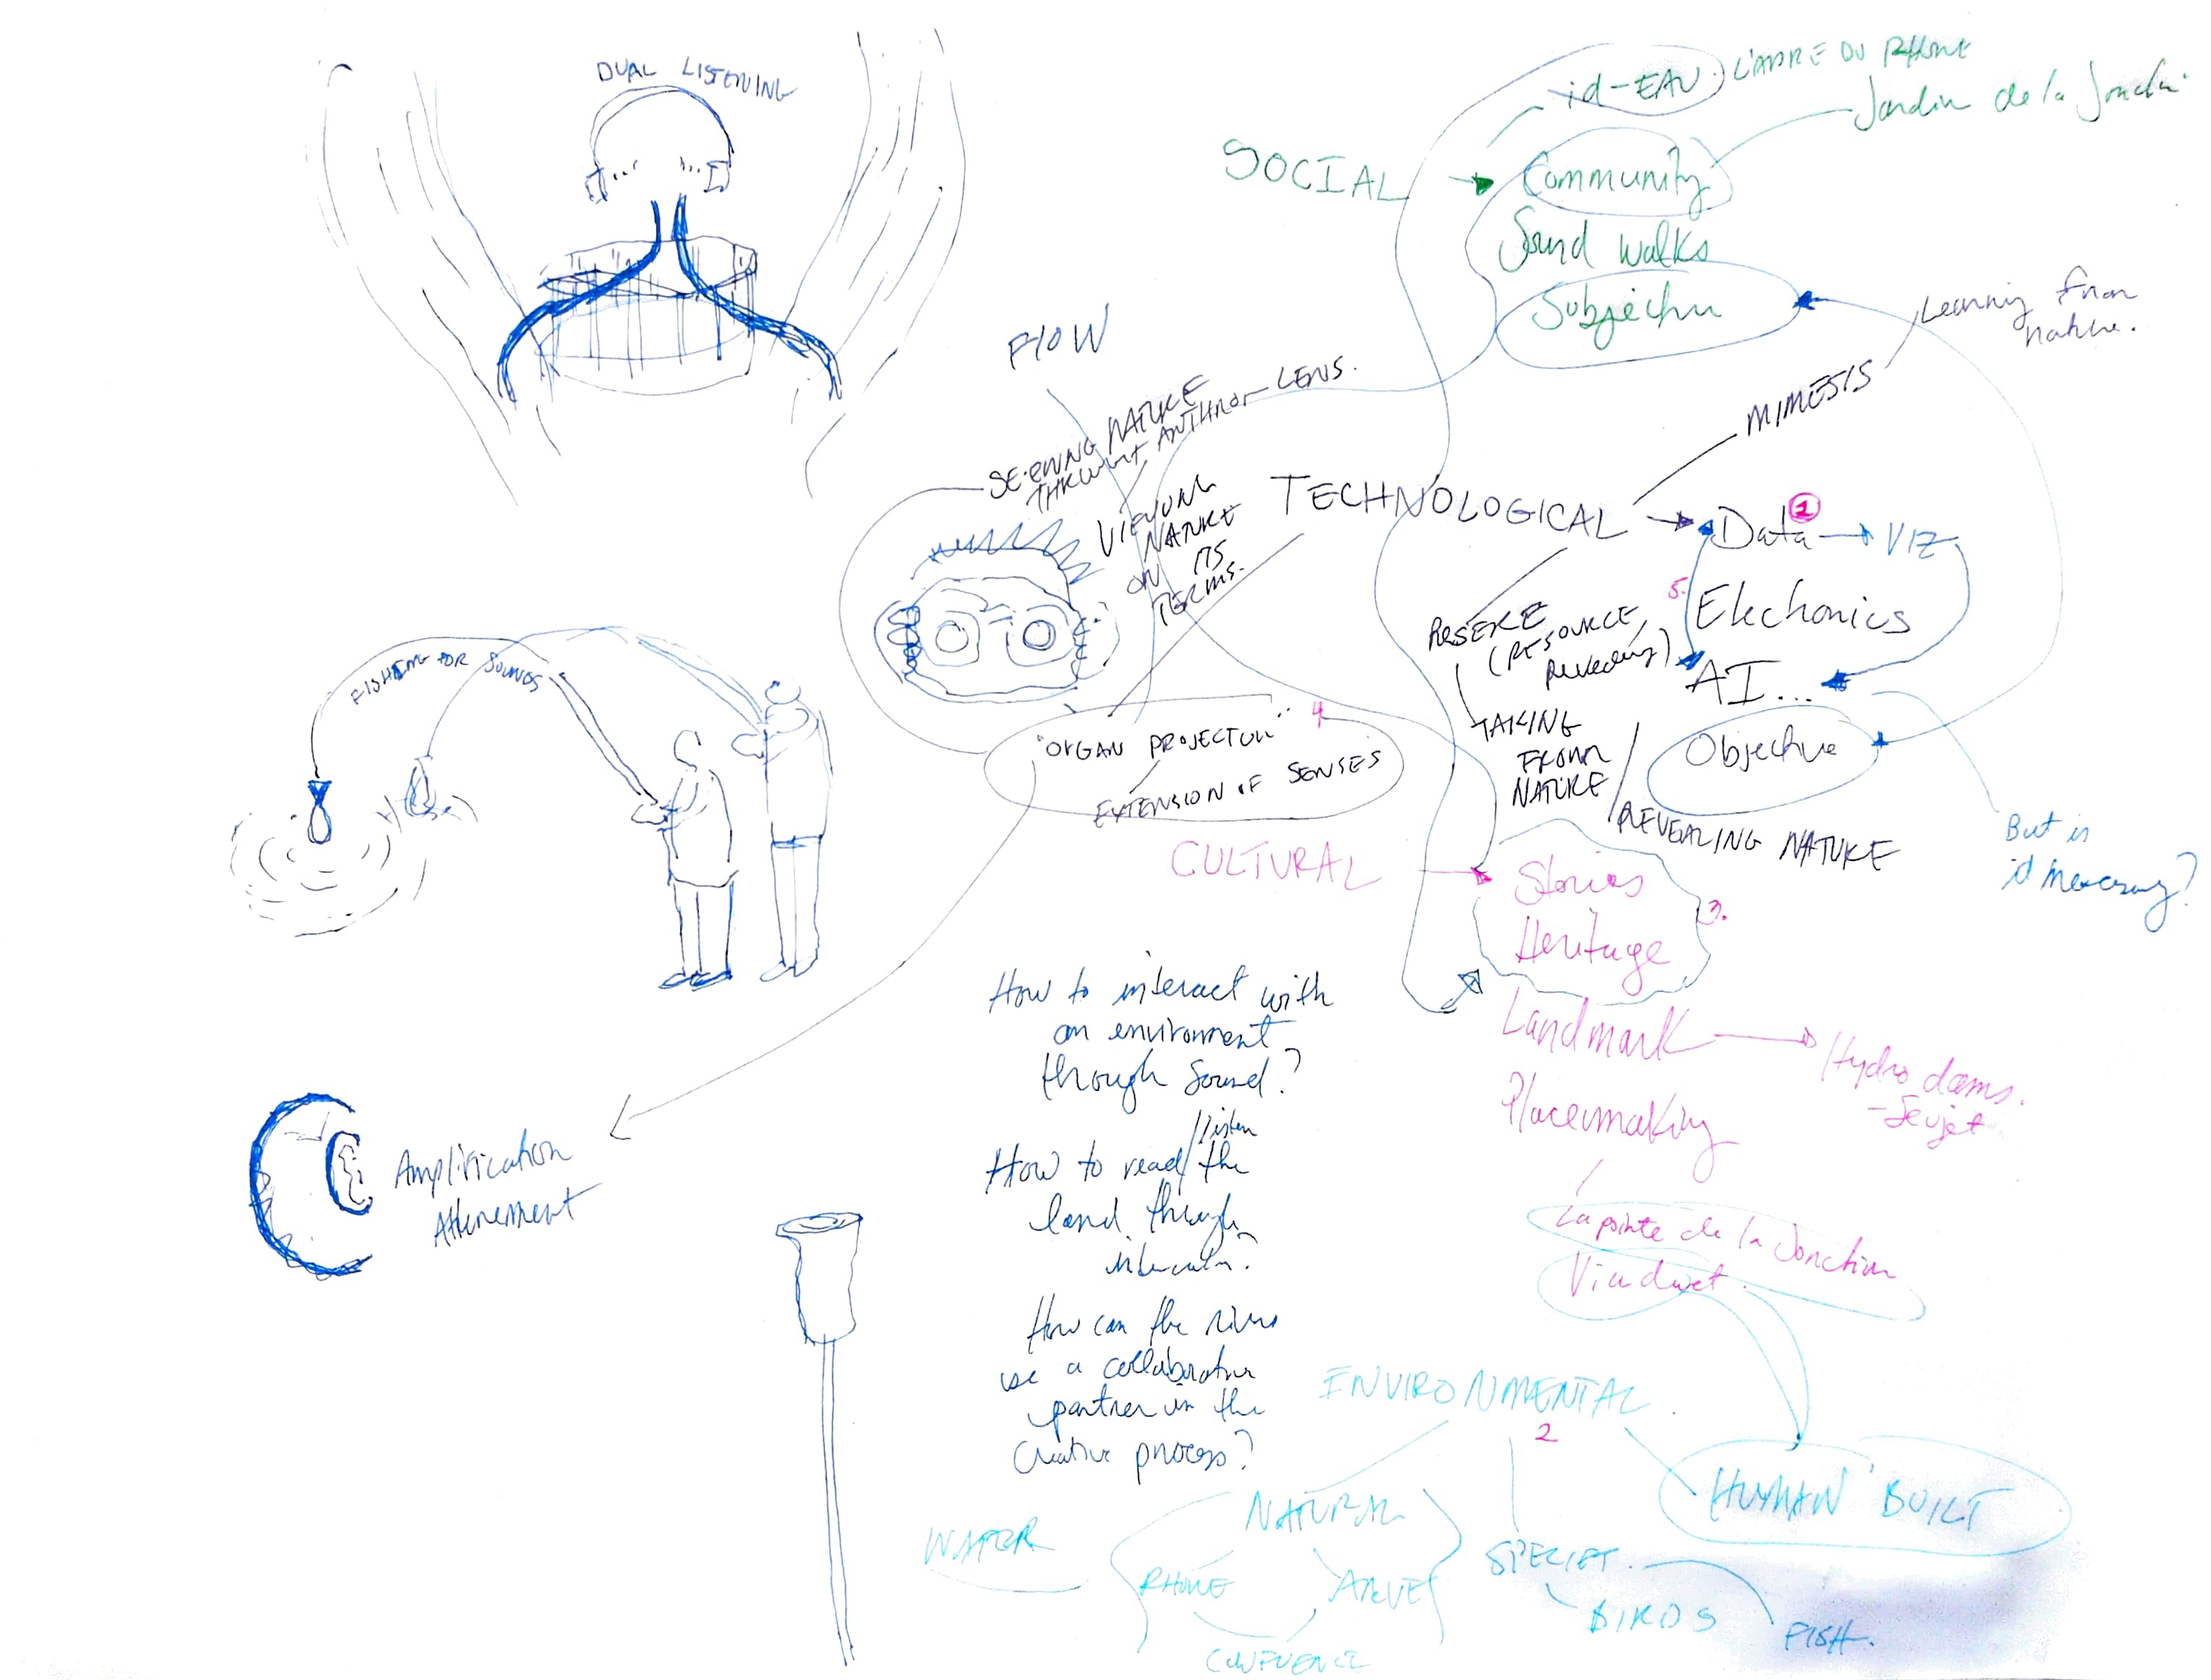 DUAL LISTENING
id-EAU
L'ARBRE DU RHONE
Jardin de la
SOCIAL
Community
Sound walks
Learning from
nature.
FLOW
LENS.
NATURE
ANTHROP
MIMESIS
VIEWING
NATURE
ON ITS
TERMS.
TECHNOLOGICAL
Data
1
VIZ
5.
Electronics
(RESOURCE,
AI...
FISHING FOR SOUNDS
"ORGAN PROJECTION"
4
EXTENSION OF SENSES
TAKING
FROM
NATURE
Objective
REVEALING NATURE
But is
it necessary?
CULTURAL
Stories
Heritage
3.
Landmark
Hydro dams.
- Seujet
Placemaking
How to interact with
an environment
through Sound?
/listen
How to read/the
land through
How can the river
use a collaborative
partner in the
creative process?
Amplification
Attunement
La pointe de la Jonction
Viaduct.
ENVIRONMENTAL
2
HUMAN BUILT
NATURAL
WATER
RHONE
ARVE
CONFLUENCE
BIRDS
FISH.